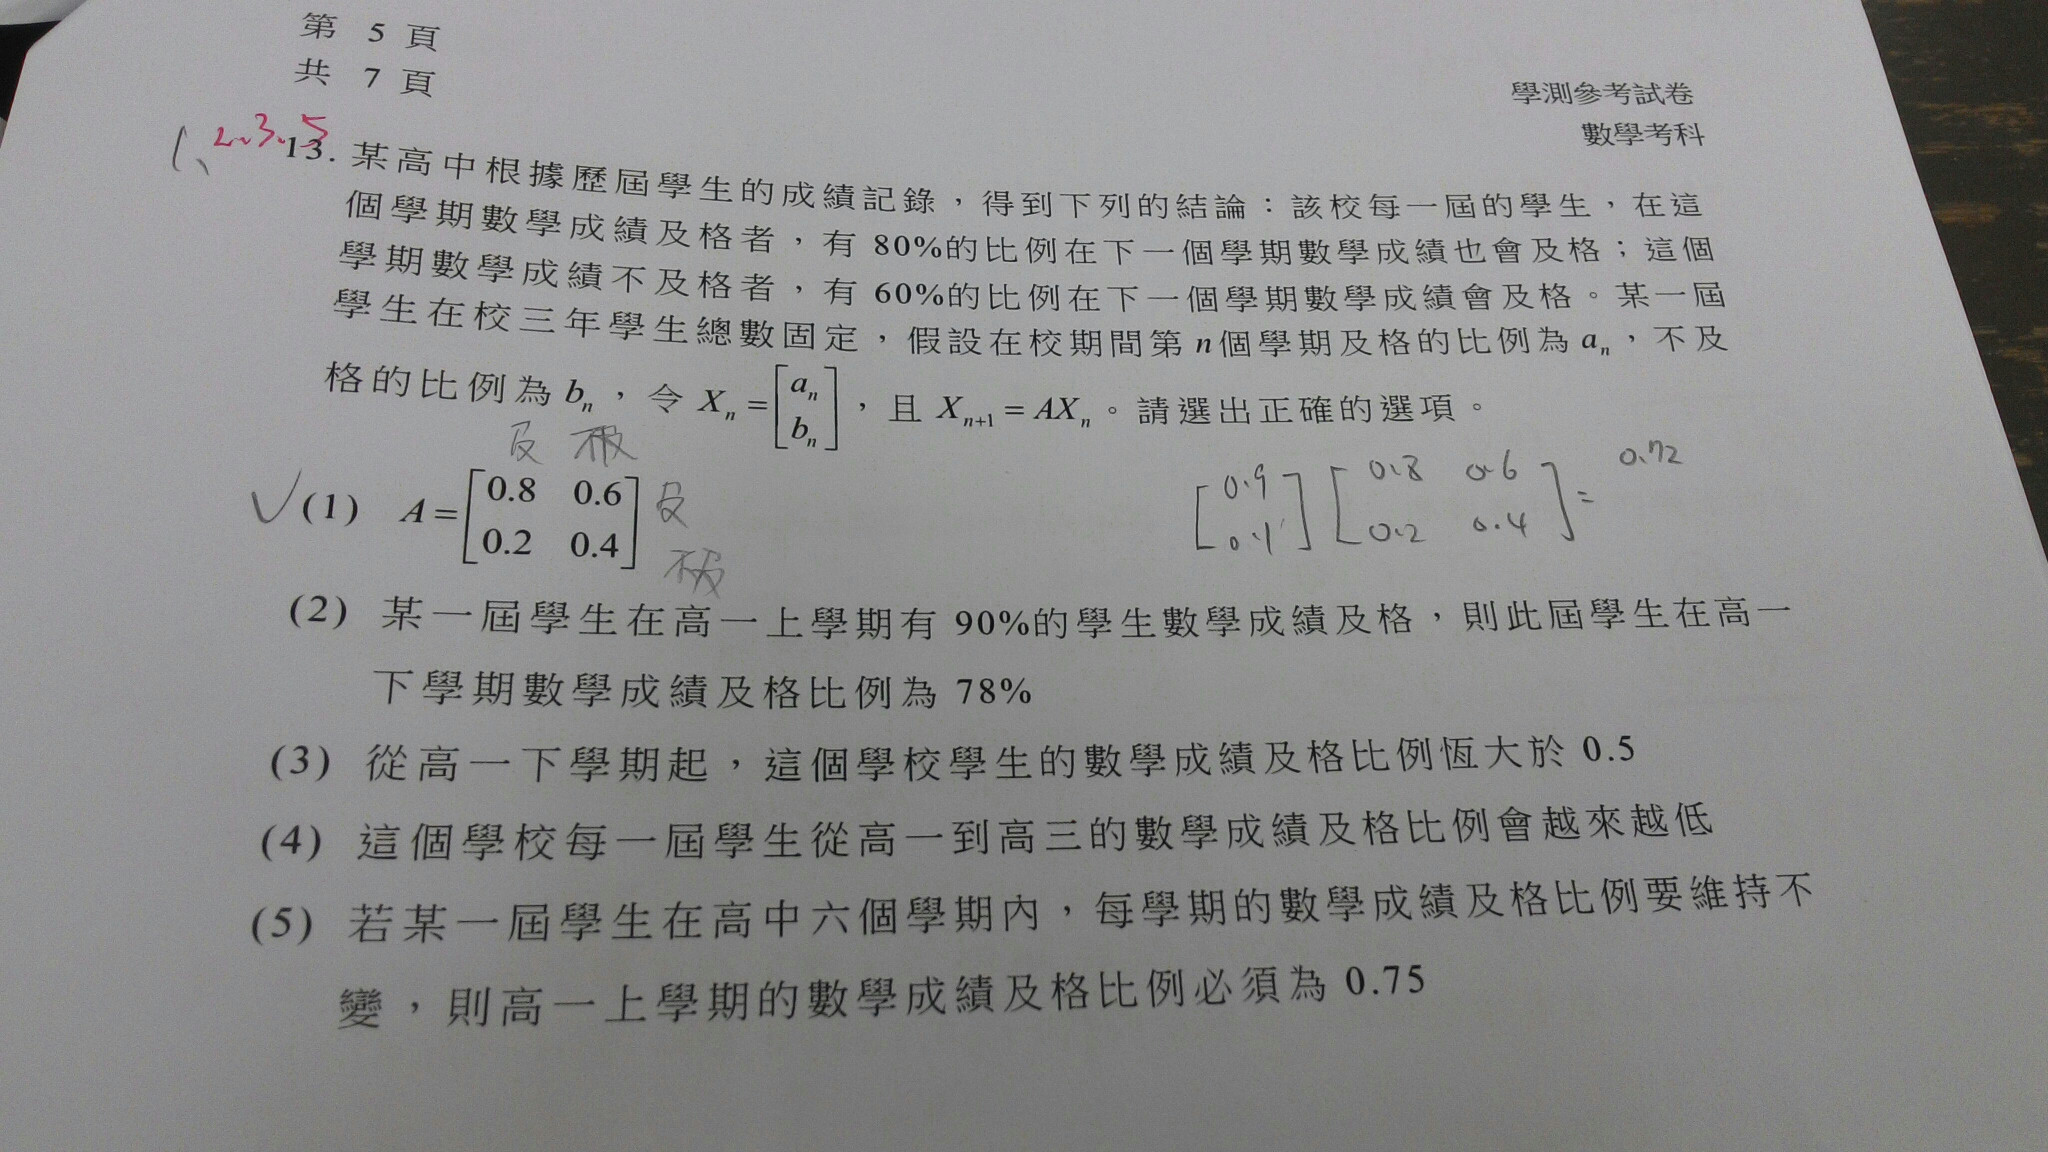 第 5 頁
共 7 頁
學測參考試卷
數學考科
1、2.3.5
13. 某高中根據歷屆學生的成績記錄,得到下列的結論:該校每一屆的學生,在這
個學期數學成績及格者,有 80%的比例在下一個學期數學成績也會及格;這個
學期數學成績不及格者,有 60%的比例在下一個學期數學成績會及格。某一屆
學生在校三年學生總數固定,假設在校期間第 n 個學期及格的比例為 aₙ,不及
格的比例為 bₙ,令 Xₙ = [aₙ bₙ],且 Xₙ₊₁ = AXₙ。請選出正確的選項。
及 不及
(1) A = [0.8 0.6
0.2 0.4]
及
不及
[0.9 0.1] [0.8 0.6
0.2 0.4] = 0.72
(2) 某一屆學生在高一上學期有 90%的學生數學成績及格,則此屆學生在高一
下學期數學成績及格比例為 78%
(3) 從高一下學期起,這個學校學生的數學成績及格比例恆大於 0.5
(4) 這個學校每一屆學生從高一到高三的數學成績及格比例會越來越低
(5) 若某一屆學生在高中六個學期內,每學期的數學成績及格比例要維持不
變,則高一上學期的數學成績及格比例必須為 0.75